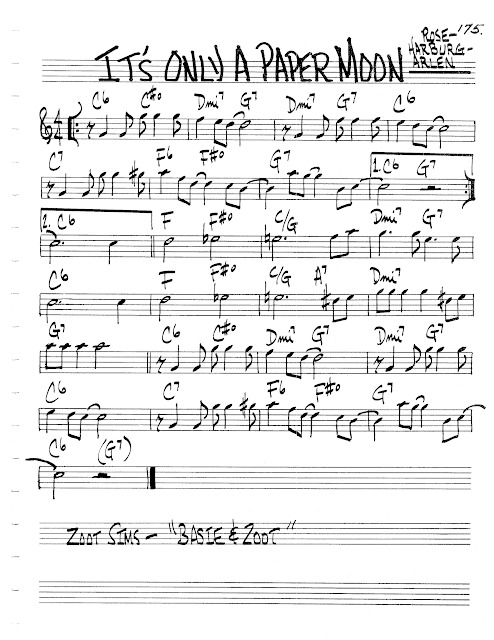 175.
IT'S ONLY A PAPER MOON
ROSE-
HARBURG-
ARLEN
C6 C#o Dmi7 G7 Dmi7 G7 C6
C7 F6 F#o G7 1. C6 G7
2. C6 F F#o C/G Dmi7 G7
C6 F F#o C/G A7 Dmi7
G7 C6 C#o Dmi7 G7 Dmi7 G7
C6 C7 F6 F#o G7
C6 (G7)
ZOOT SIMS - "BASIE & ZOOT"